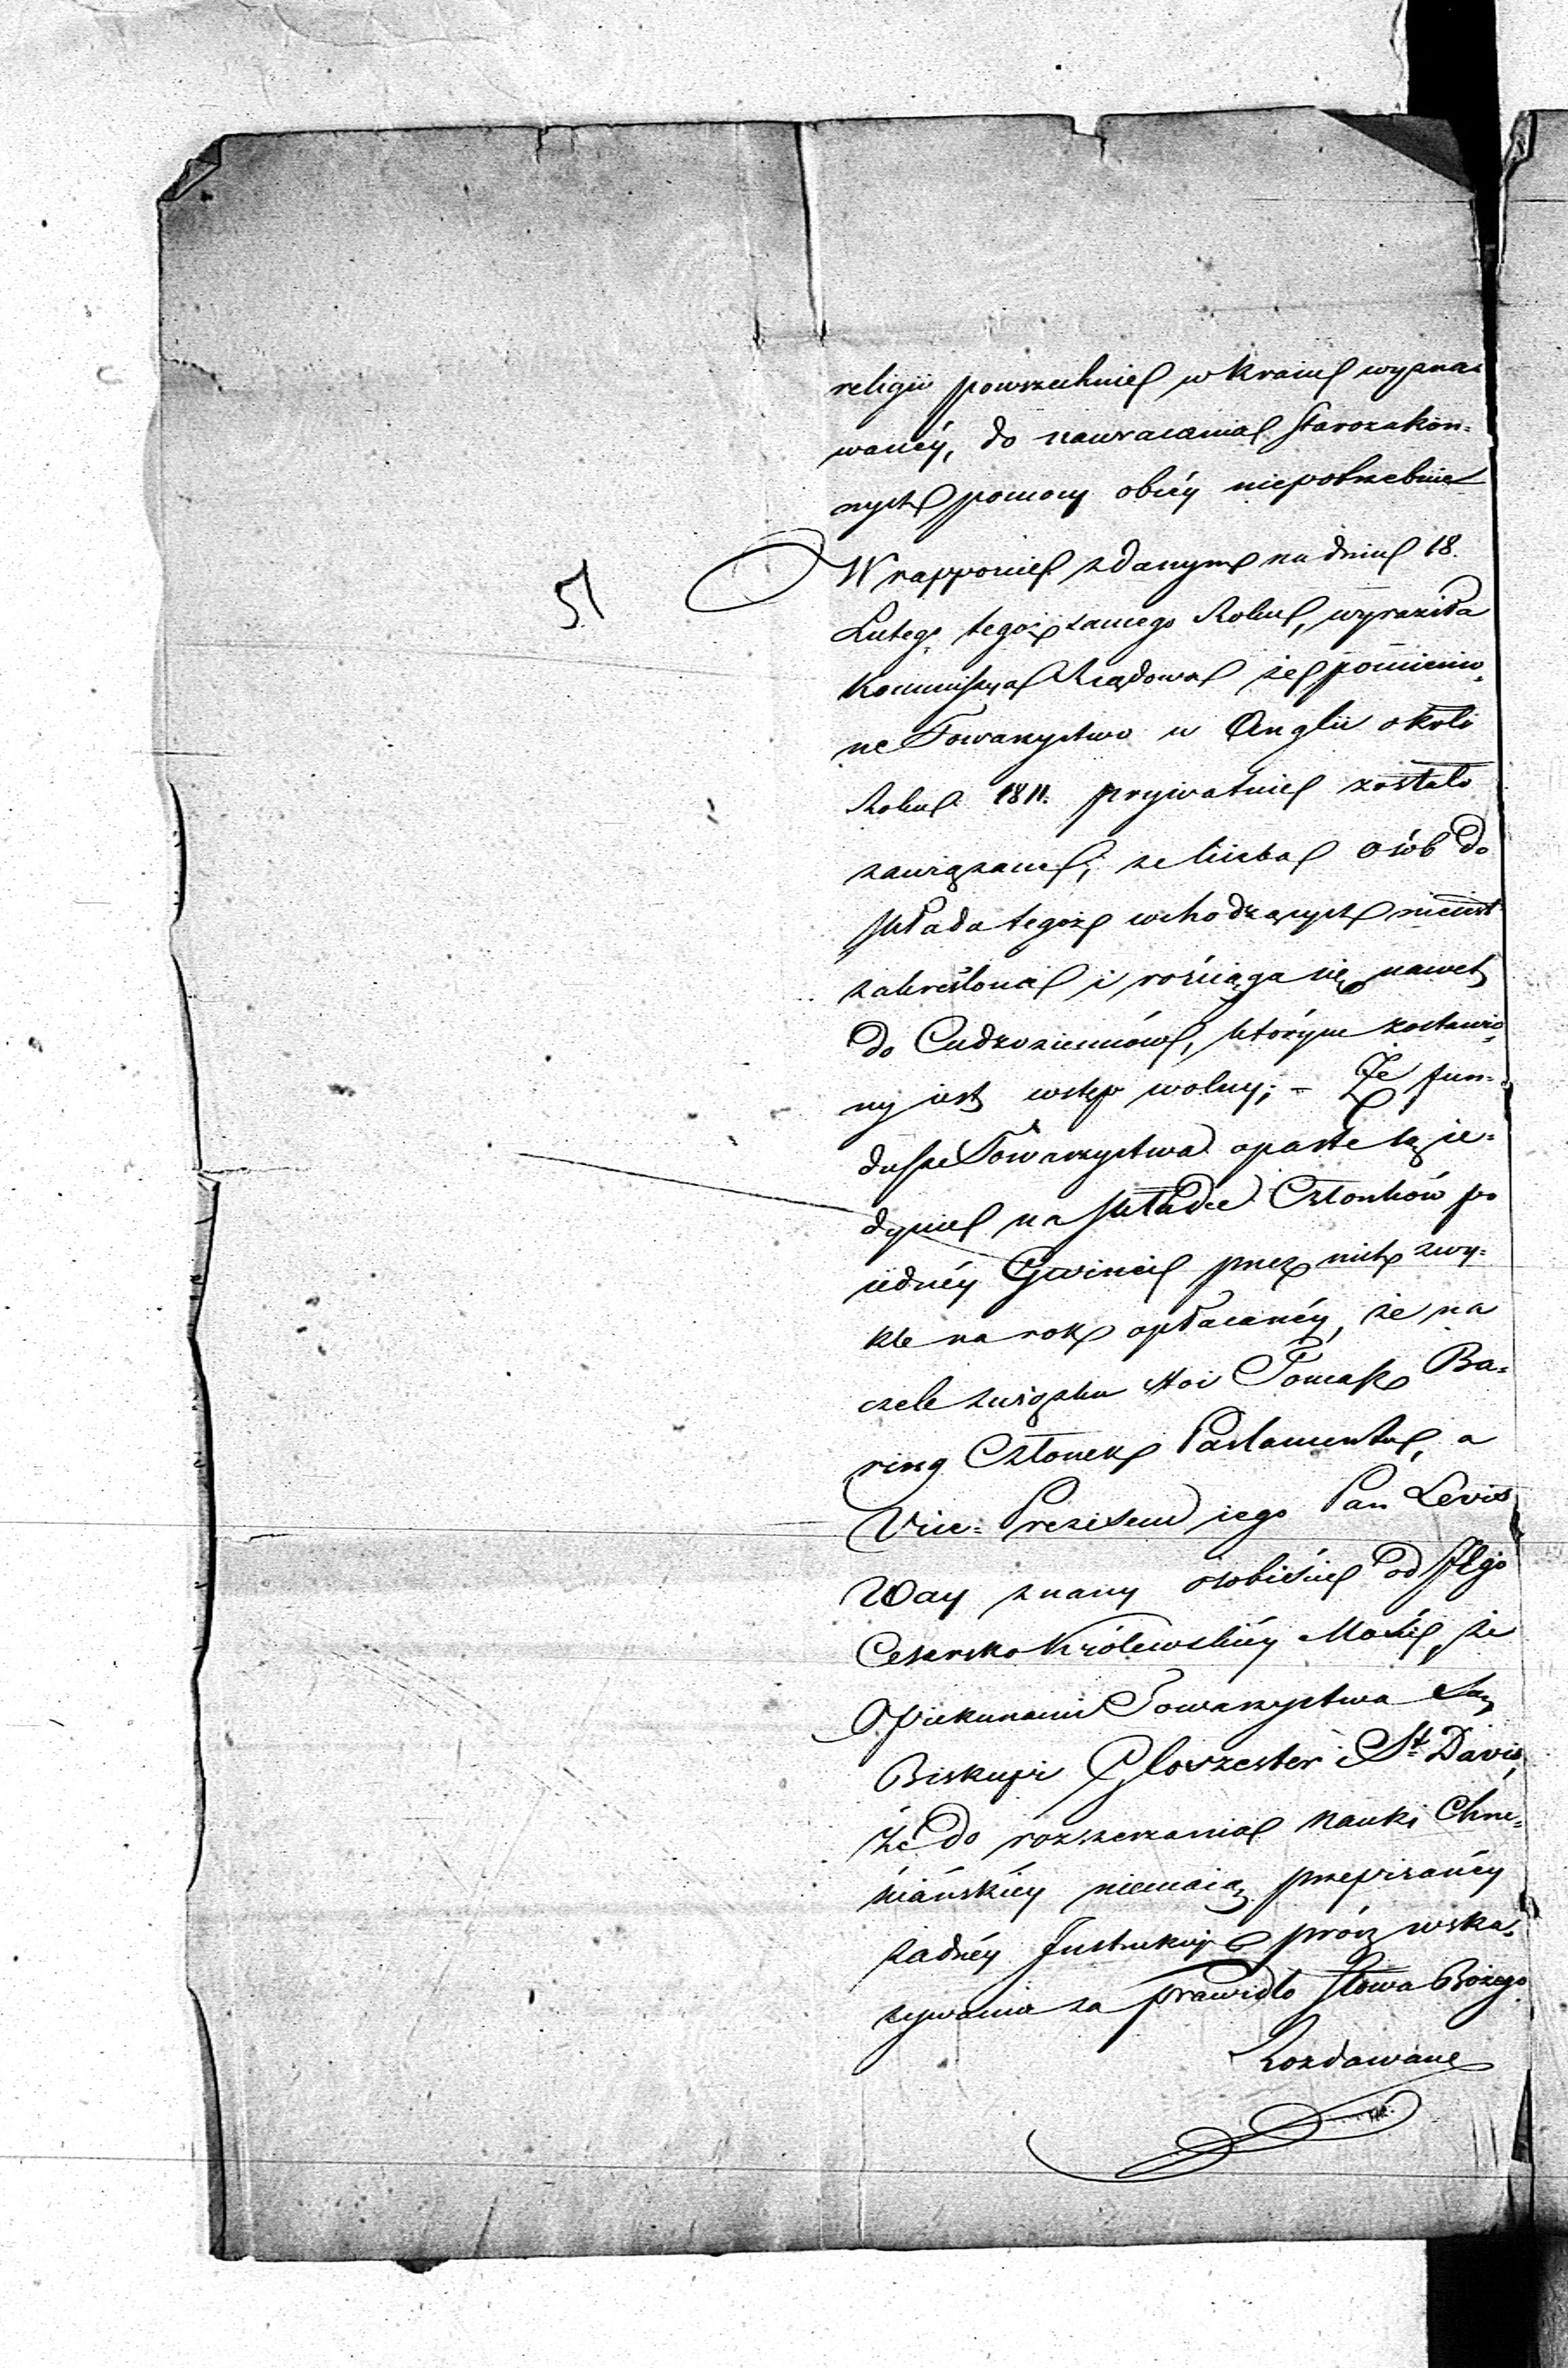 religii powszechnie w kraiu wyzna=
wanéy, do nawracania Starozakon=
nych pomocy obcéy niepotrzebuie
51
W rapporcie zdanym na dniu 18.
Lutego tegoż samego Roku, wyraziła
Kommissya Rządowa że pomienio=
ne Towarzystwo w Anglii około
Roku 1811. prywatnie zostało
zawiązane; że liczba osób do
składa tegoż wchodzących nieiest
zakreślona i rościąga się nawet
do Cudzoziemców, którym zostawio=
ny iest wstęp wolny; – Że fun=
dusze Towarzystwa oparte są ie=
dynie na składce Członków po
iednéy Gwinei przez nich zwy=
kle na rok opłacanéy, że na
czele związku stoi Tomasz Ba=
ring Członek Parlamentu, a
Vice=Prezesem iego Pan Levis
Way znany osobiście od
Cesarsko Królewskiéy Mości, że
Opiekunami Towarzystwa są
Biskupi Gloszester i St. Davis,
że do rozszerzania nauki Chrze=
ściańskiéy niemaią przepisanéy
żadnéy Instrukcyi prócz wska=
zywania za prawidło słowa Bożego
Rozdawane